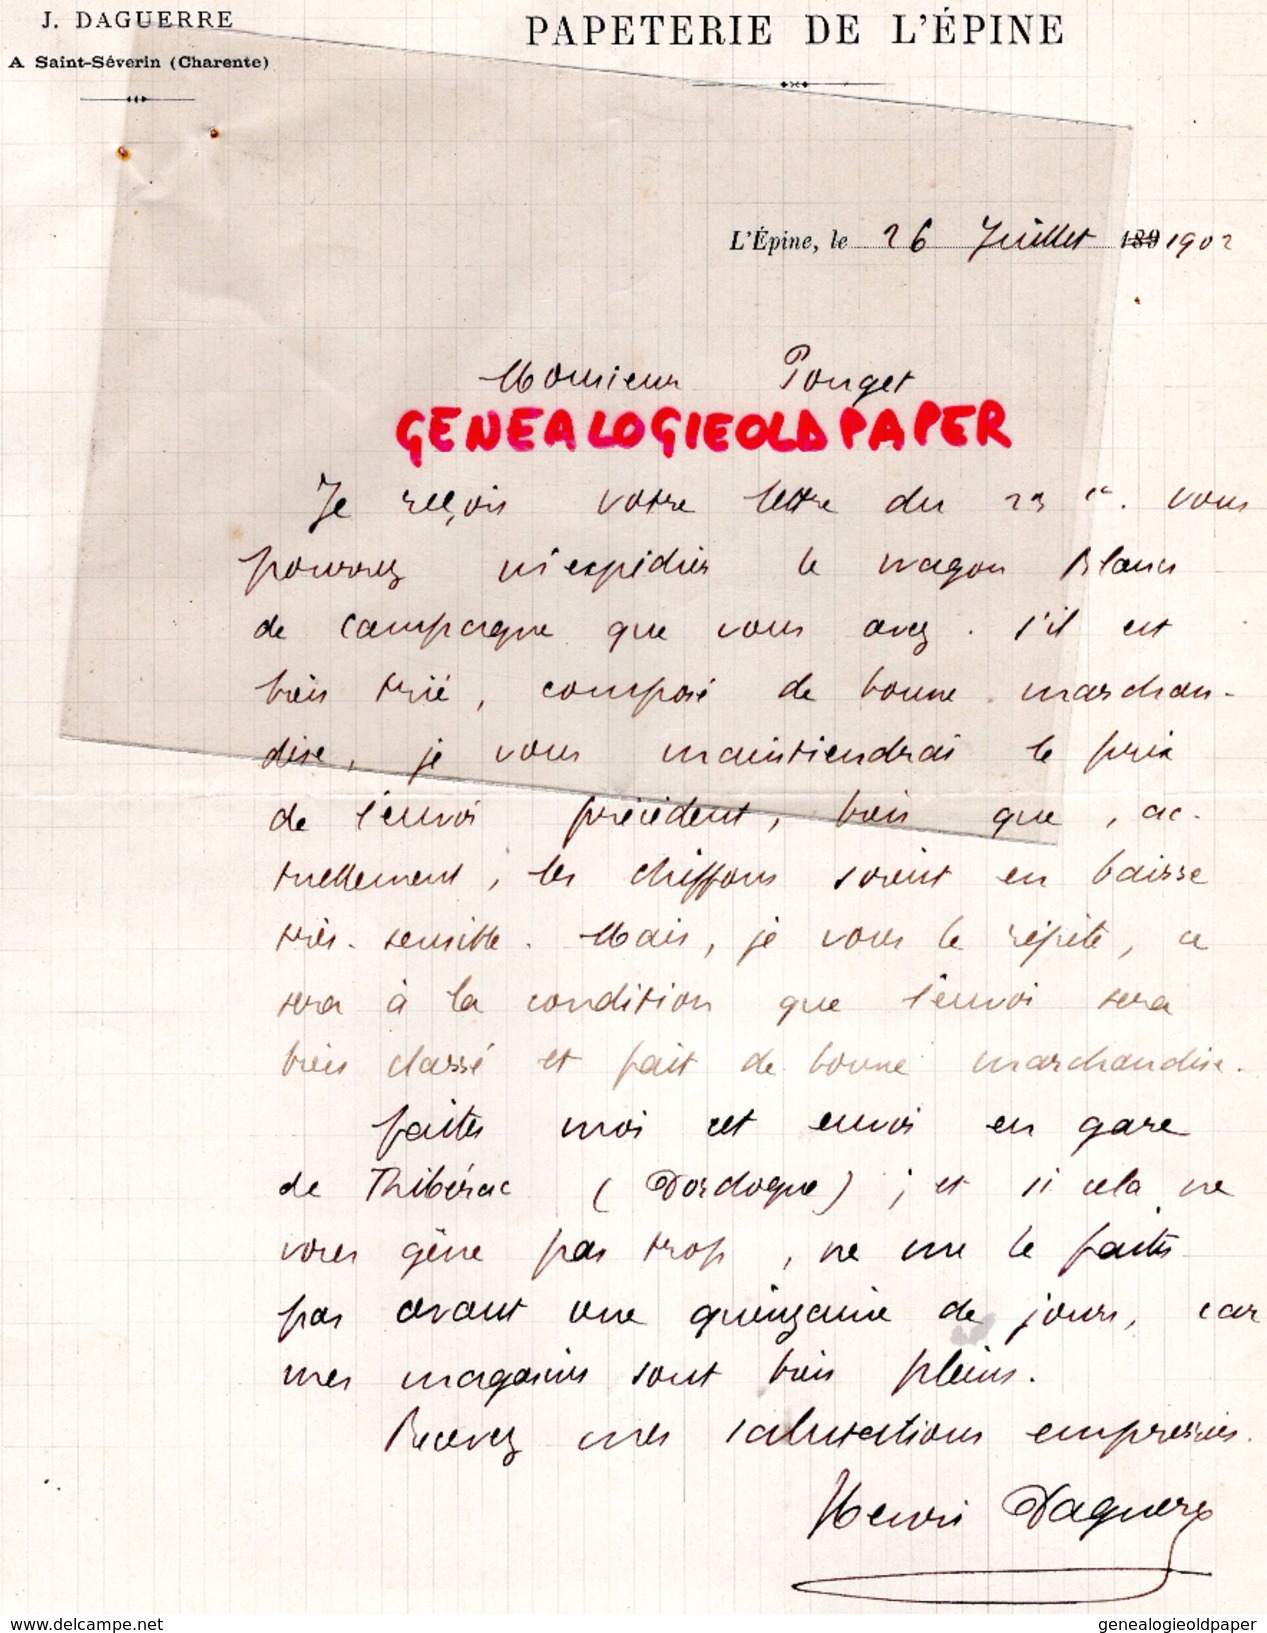 J. DAGUERRE
A Saint-Séverin (Charente)
PAPETERIE DE L'ÉPINE
L'Épine, le 26 Juillet 189 1902
Monsieur Pouget
GENEALOGIEOLDPAPER
Je reçois votre lettre du 23 ct. Vous
pourrez m'expédier le wagon Blancs
de campagne que vous avez. S'il est
bien trié, composé de bonne marchan-
dise, je vous maintiendrai le prix
de l'envoi précédent, bien que, ac-
tuellement, les chiffons soient en baisse
très sensible. Mais, je vous le répète, ce
sera à la condition que l'envoi sera
bien classé et fait de bonne marchandise.
Faites moi cet envoi en gare
de Ribérac (Dordogne) ; et si cela ne
vous gêne pas trop, ne me le faites
pas avant une quinzaine de jours, car
mes magasins sont bien pleins.
Recevez mes salutations empressées.
Henri Daguerre
delcampe.net
genealogieoldpaper